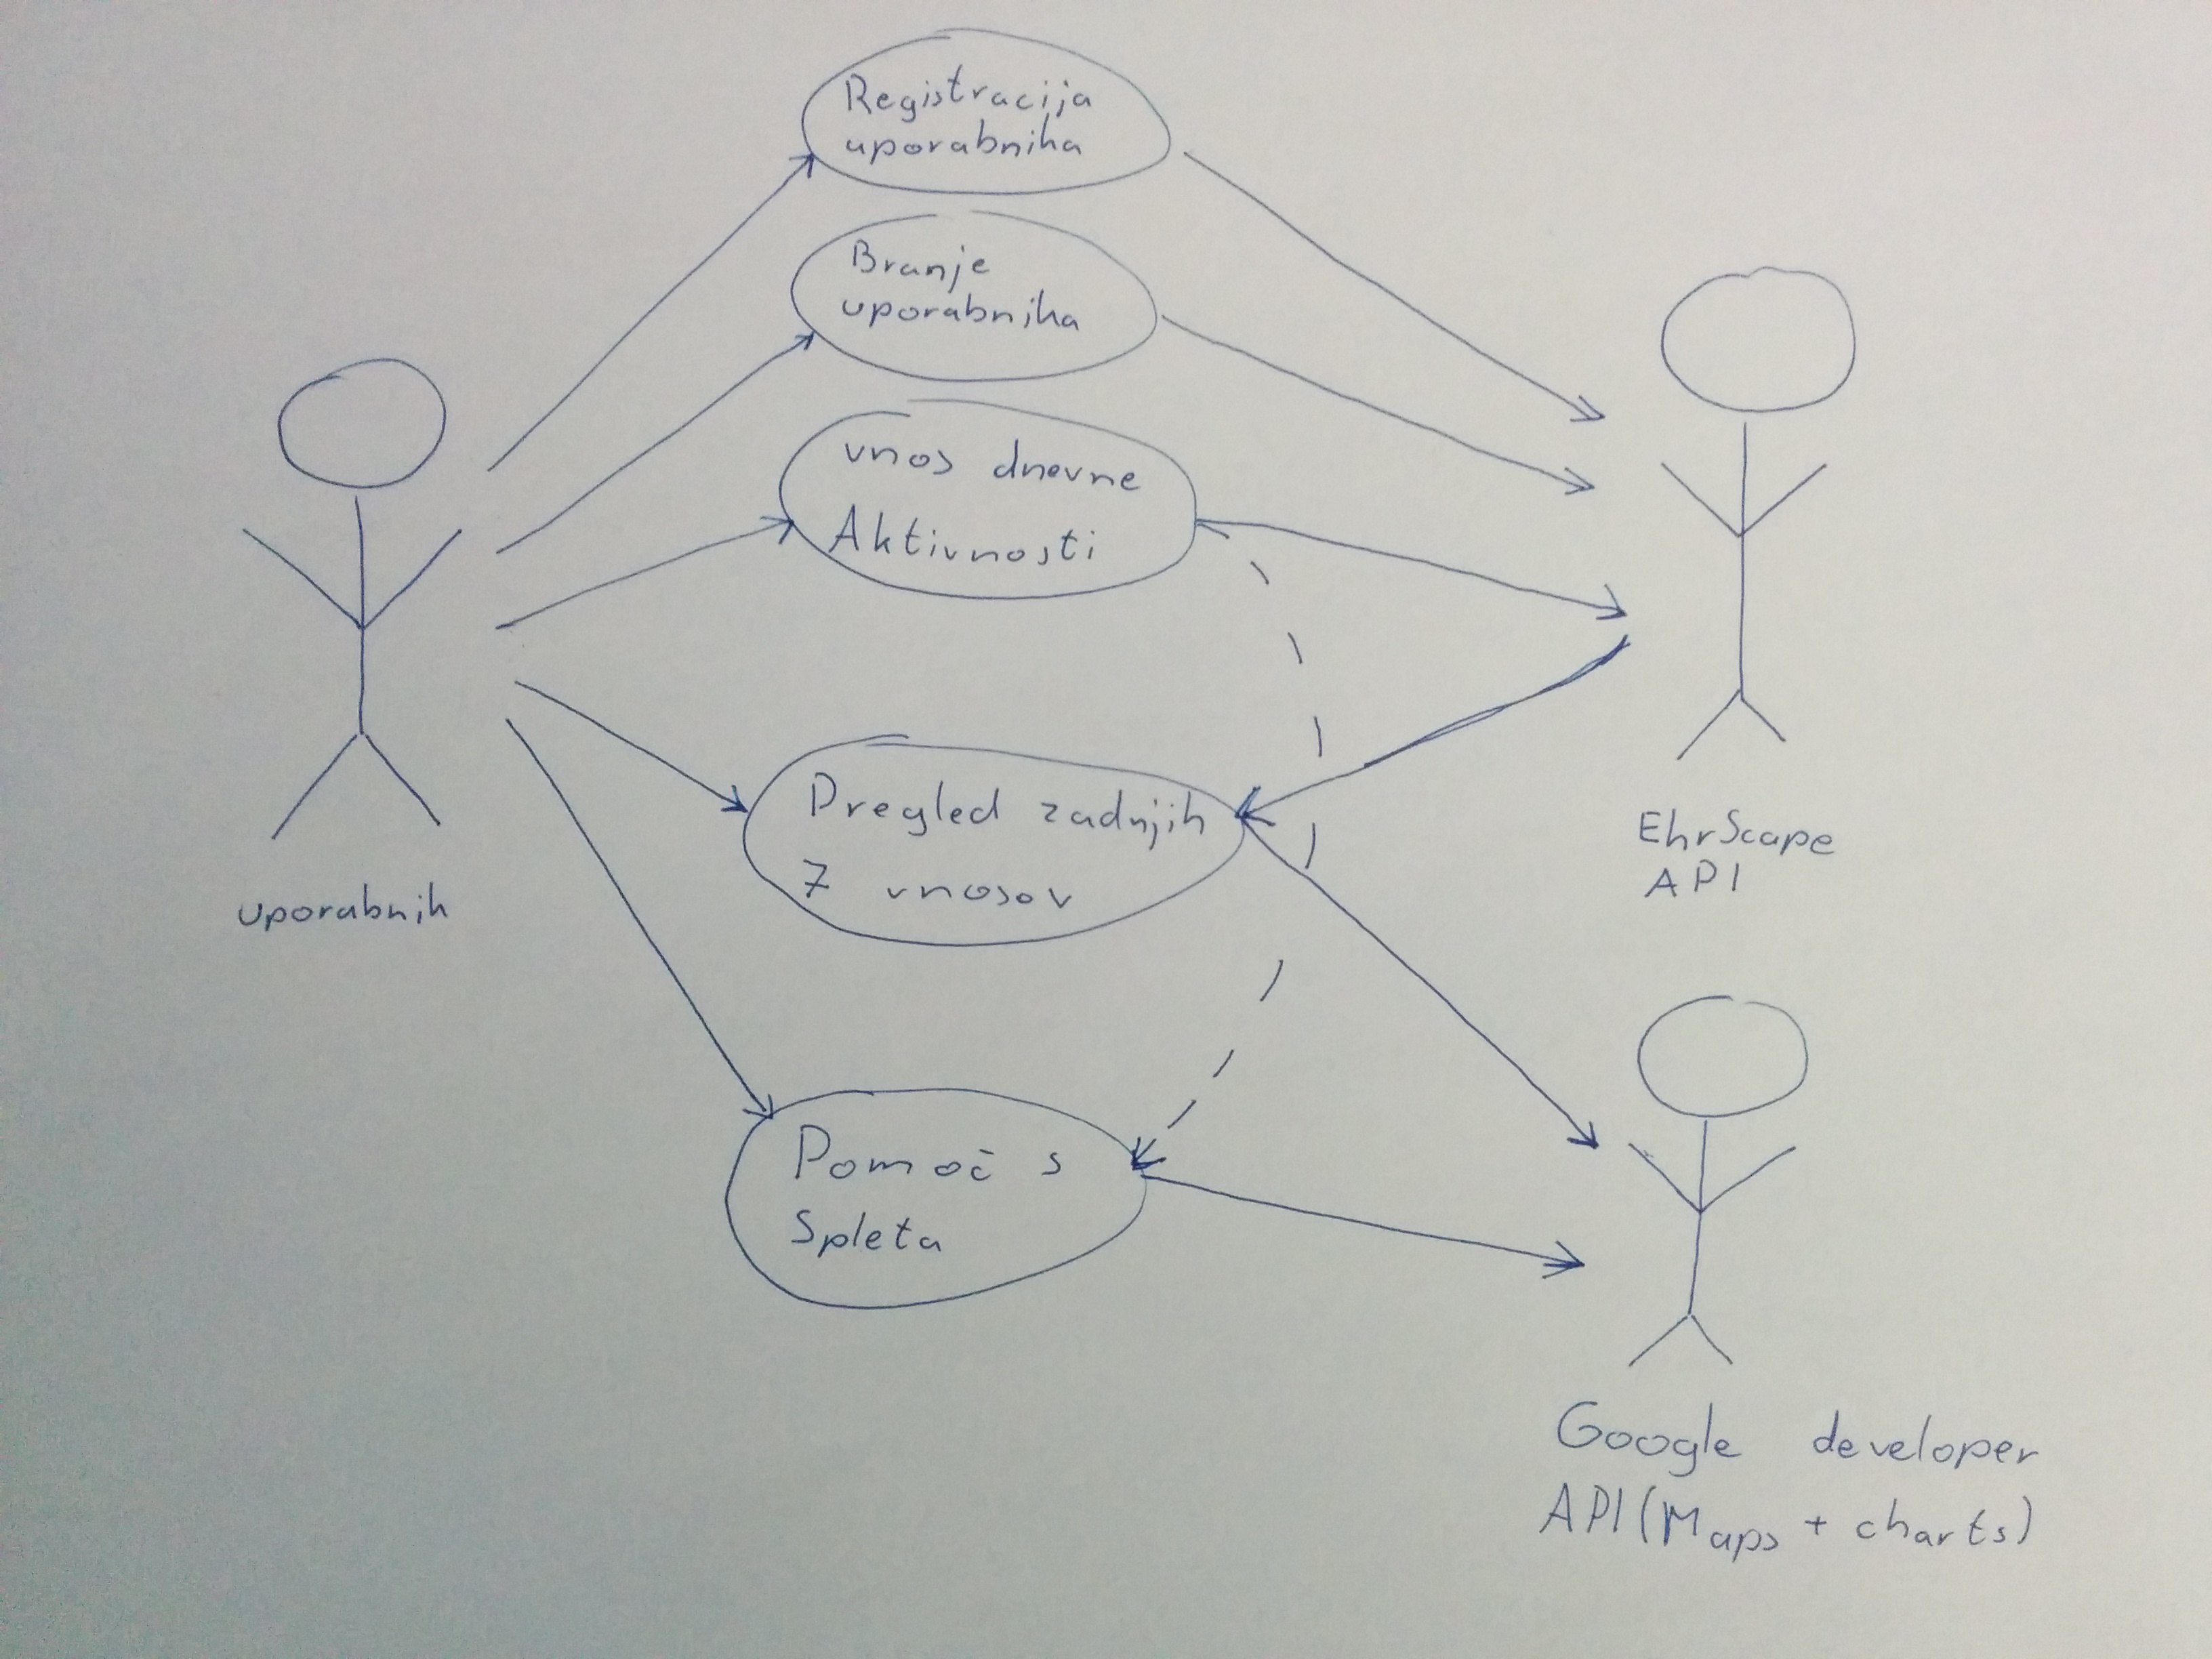 Registracija
uporabnika
Branje
uporabnika
vnos dnevne
Aktivnosti
Pregled zadnjih
7 vnosov
Pomoč s
Spleta
uporabnik
EhrScape
API
Google developer
API (Maps + charts)